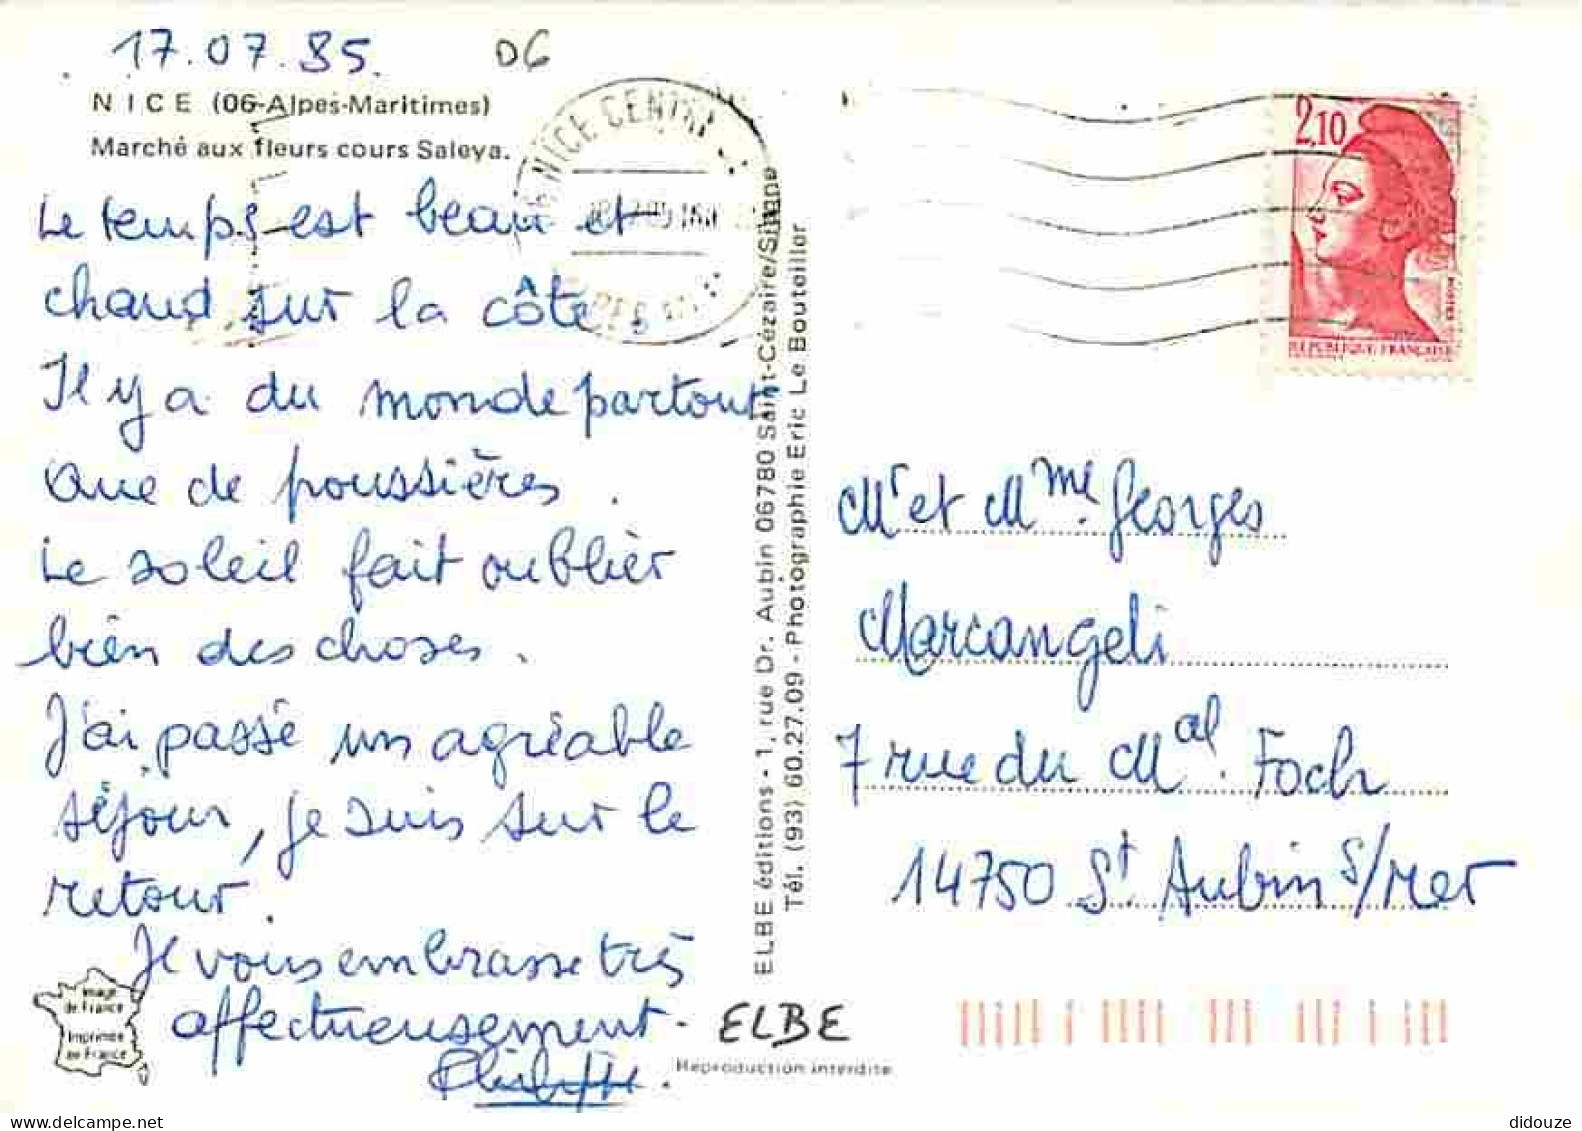 17.07.85.
06
NICE (06-Alpes-Maritimes)
Marché aux fleurs cours Saleya.
Le temps est beau et
chaud sur la côte.
Il y a du monde partout
que de poussières.
Le soleil fait oublier
bien des choses.
J'ai passé un agréable
séjour, je suis sur le
retour.
Je vous embrasse très
affectueusement.
Philippe.
Image
de France
Imprimée
en France
NICE CENTR
ELBE éditions - 1, rue Dr. Aubin 06780 Saint-Cézaire/Siagne
Tél. (93) 60.27.09 - Photographie Eric Le Bouteiller
ELBE
Reproduction interdite
2,10
REPUBLIQUE FRANÇAISE
Mr et Mme Georges
Marcangeli
7 rue du Mal. Foch
14750 St Aubin s/Mer
didouze